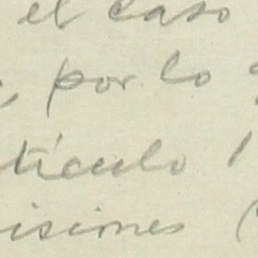 el caso
, por lo
tículo 1
isiones (